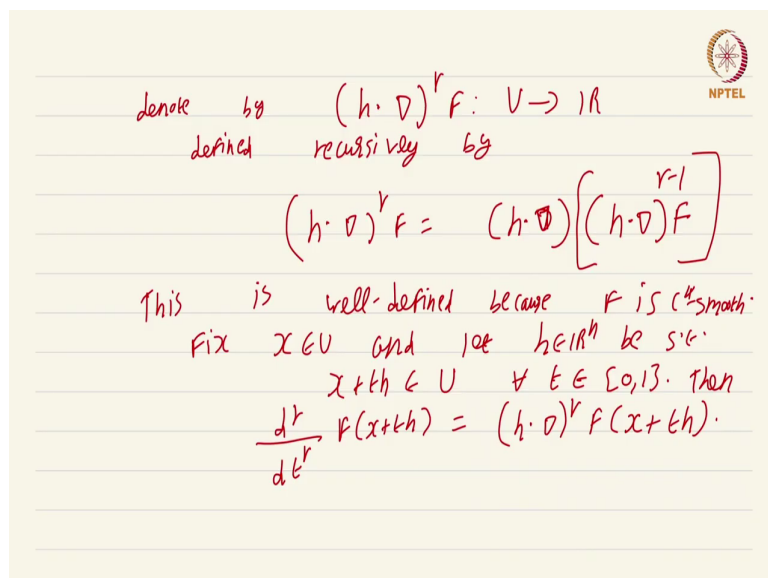 NPTEL
denote by (h·∇)^r F: U → ℝ
defined recursively by
(h·∇)^r F = (h·∇)[(h·∇)^{r-1} F]
This is well-defined because F is C^k-smooth.
Fix x ∈ U and let h ∈ ℝ^n be s.t.
x+th ∈ U ∀ t ∈ [0,1]. Then
d^r/dt^r F(x+th) = (h·∇)^r F(x+th).